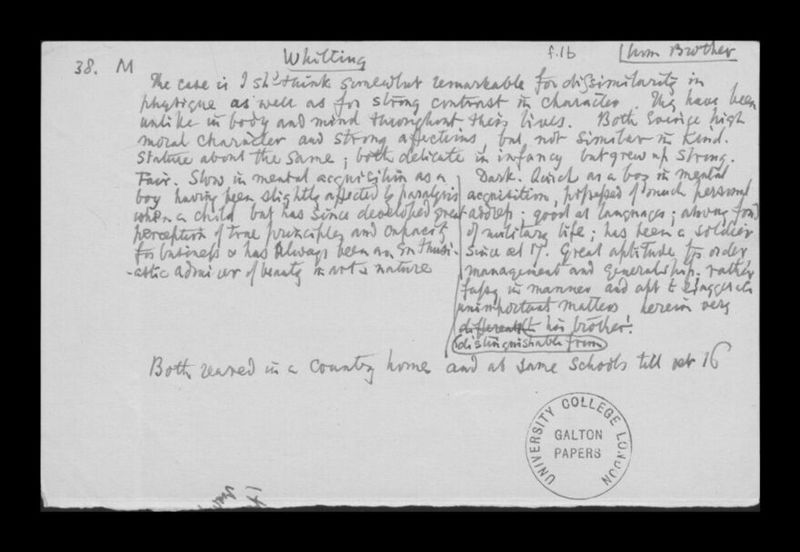 38. M
Whitting
f.1b
from Brother
The case is I shd think somewhat remarkable for dissimilarity in
physique as well as for strong contrast in character. They have been
unlike in body and mind throughout their lives. Both evince high
moral character and strong affections, but not similar in kind.
Stature about the same; both delicate in infancy but grew up strong.
Fair. Slow in mental acquisition as a
boy having been slightly affected by paralysis
when a child but has since developed great
perception of true principles and capacity
for business & has always been an enthusi-
-astic admirer of beauty in art & nature
Dark. Quick as a boy in mental
acquisition, possessed of much personal
address; good at languages; always fond
of military life; has been a soldier
since aet 17. Great aptitude for order
management and generalship. rather
fussy in manner and apt to exaggerate
unimportant matters herein very
different his brother.
distinguishable from
Both reared in a country home and at same schools till aet 16
UNIVERSITY COLLEGE LONDON
GALTON
PAPERS